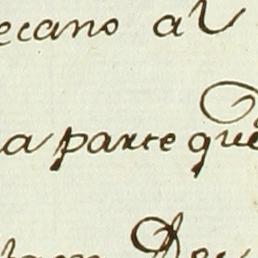 ecano al
a parte que